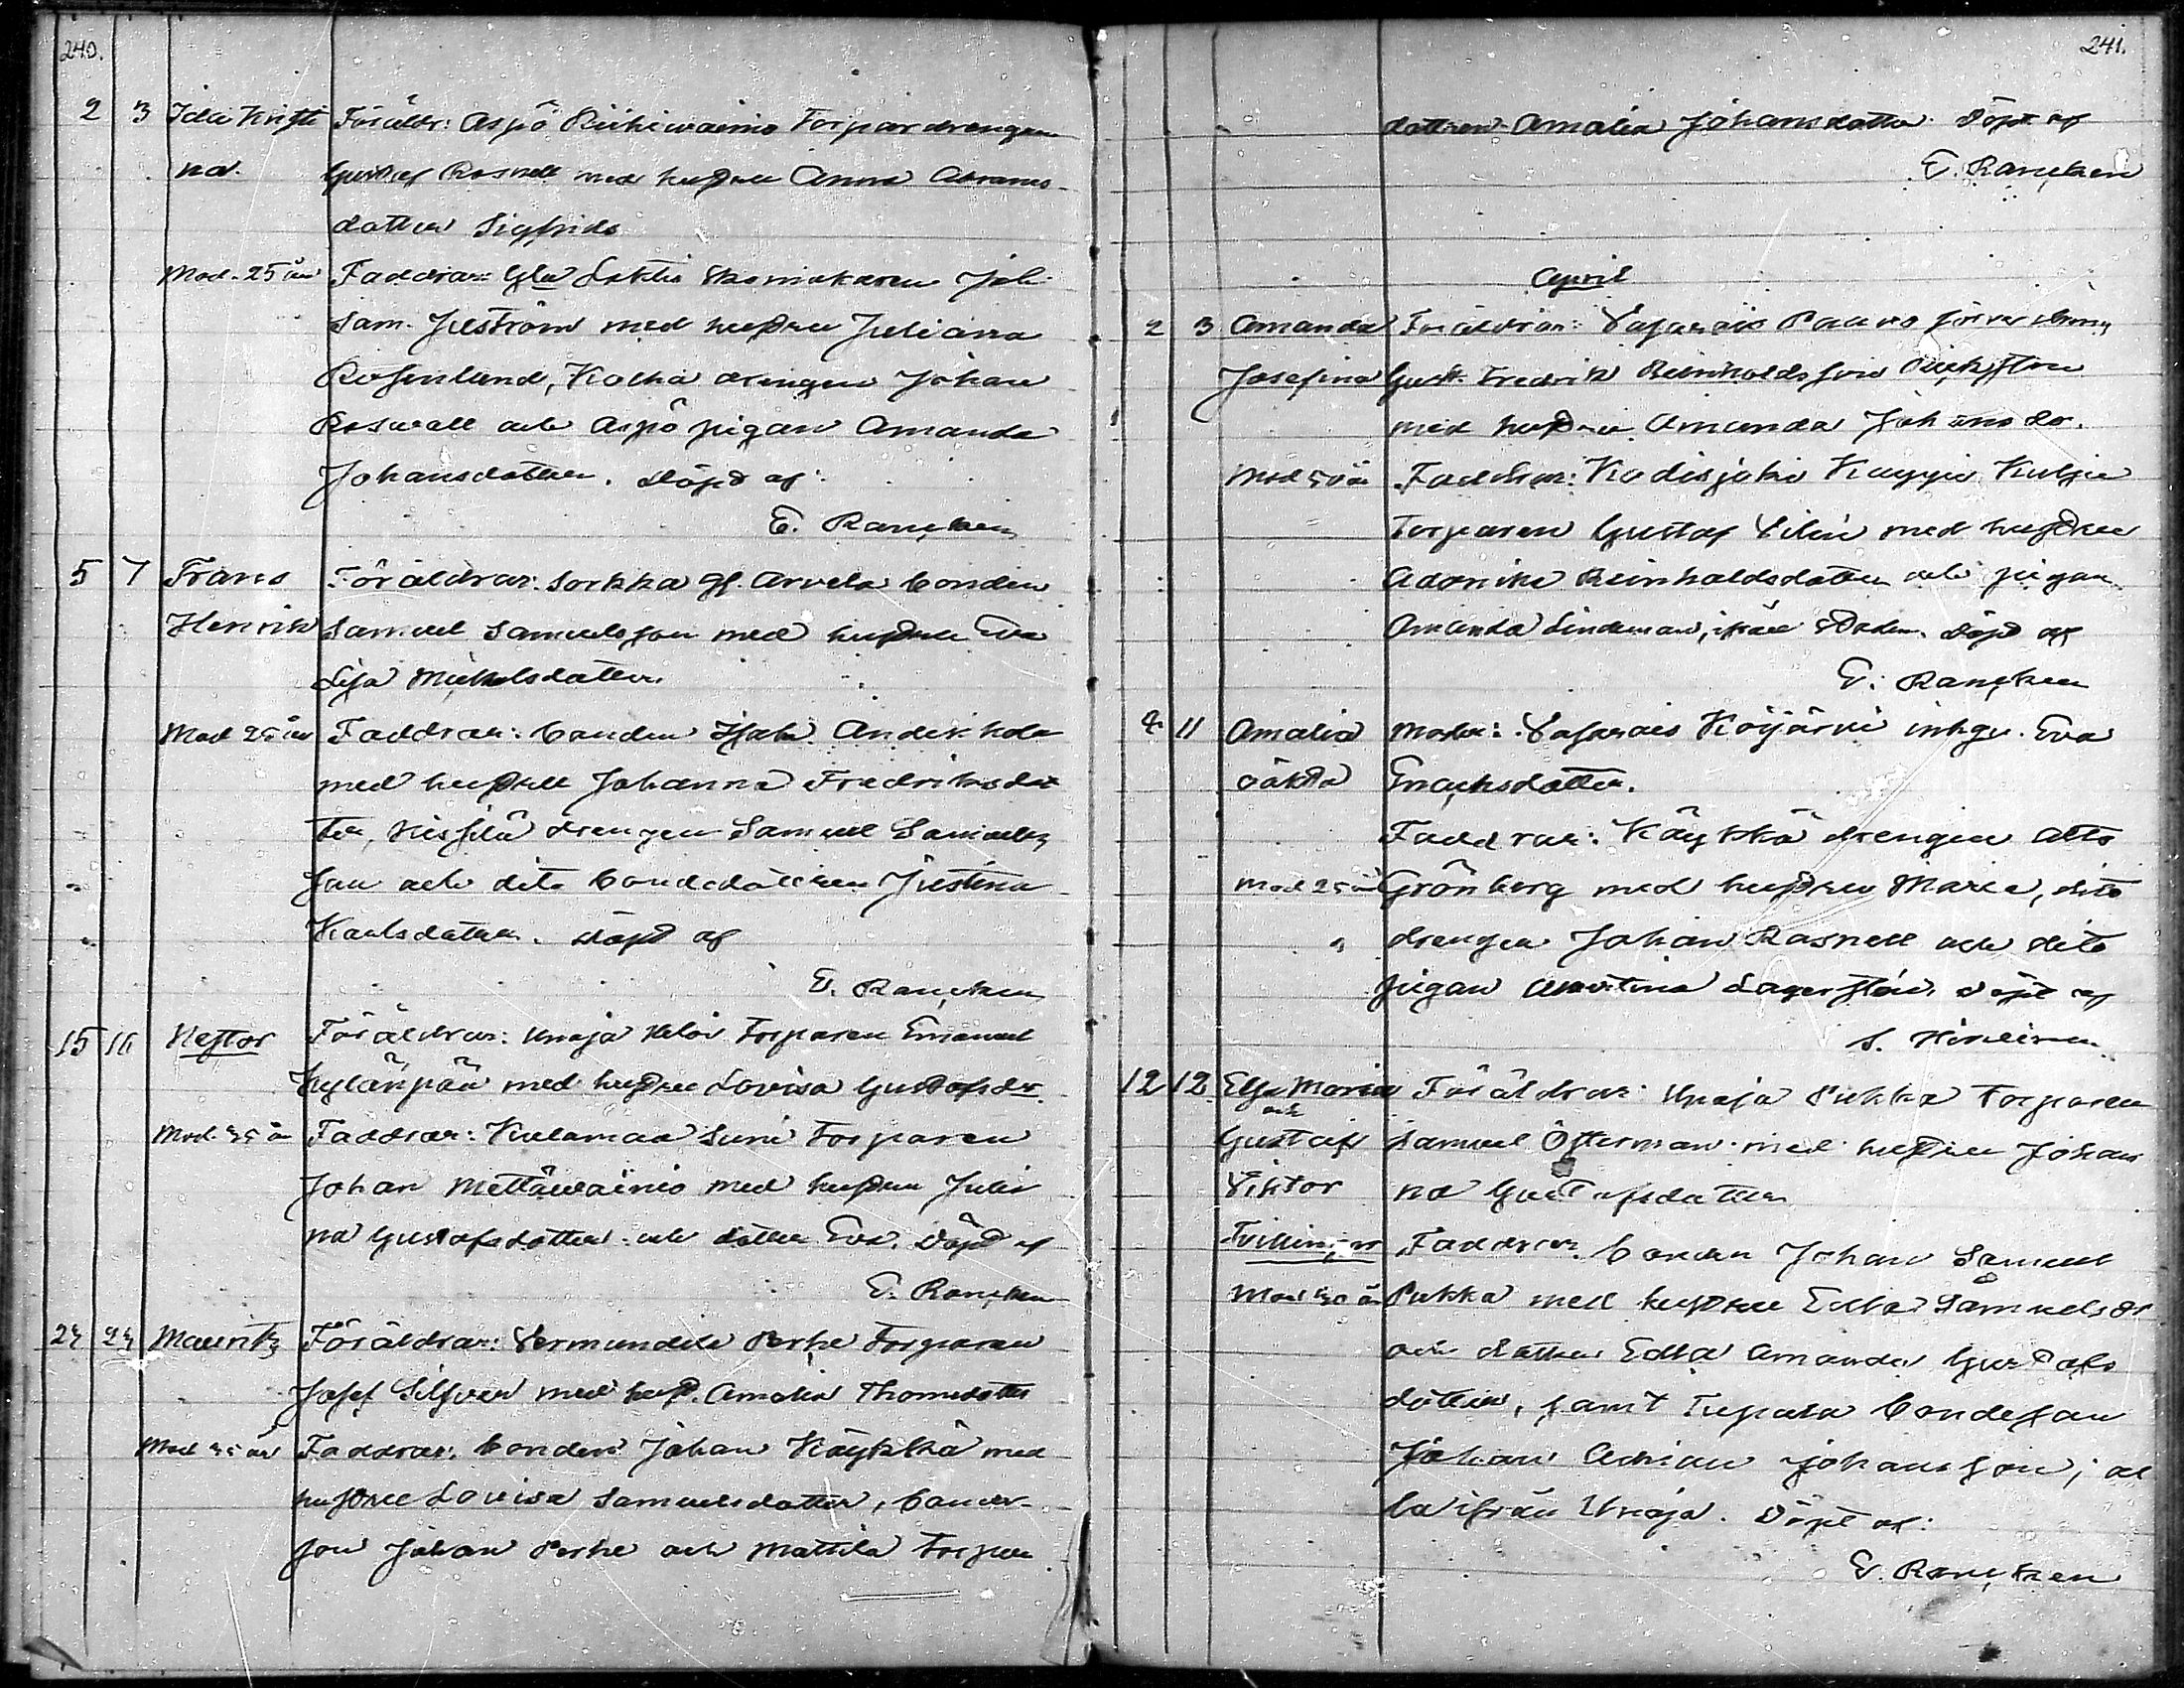 240.
2 3 Ida Kristi Föräldr: Aspö Riihiwainio Torpar drengen
na. Gustaf Rosnell med hustru Anna Abrams-
dotter Sigfrids
Mod. 25 år Faddrar: Gla Lahtis Skomakaren Joh:
Sam. Juström med hustru Juliana
Rosenlund, Kolha drengen Johan
Roswall och Aspö pigan Amanda
Johansdotter. Döpt af:
E. Rancken
5 7 Frans Föräldrar: Sorkka gl. Arvela bonden
Henrik Samuel Samuelsson med hustru Eva
Lisa Michelsdotter.
Mod 25 år Faddrar: bonden Isak Andexkola
med hustru Johanna Fredriksdot
ter, drengen Samuel Samuels
son och dito bondedottren Justina
Karlsdotter. Döpt af
E. Rancken
15 16 Nestor Föräldrar: Unaja Torparen Emanuel
Kylänpää med hustru Lovisa Gustafsdr.
Mod. 35 år Faddrar: Kulamaa Suni Torparen
Johan Mettäwainio med hustru Julia
na Gustafsdotter och dotter Eva. Döpt af
E. Rancken
24 24 Mauritz Föräldrar: Vermundila Perhe Torparen
Josef Silfver med hust. Amalia Thomedotter
Mod 35 år Faddrar: bonden Johan Käykkä med
hustru Lovisa Samuelsdotter, bonde-
son Johan Perhe och Mattila Torpare
241.
dottren Amalia Johansdotter. Döpt af
E. Rancken
April
2 3 Amanda Föräldrar: Vasarais Pauvo
Josefina Gust. Fredrik Reinholdsson
med hustru Amanda Johansdr.
Mod 30 år Faddrar: Kodisjoki Kulju
Torparen Gustaf Vilén med hustru
Adonika Reinholdsdotter och pigan
Amanda Lindeman, ifrån Staden. Döpt af
E. Rancken
4 11 Amalia Moder: Vasarais Köyjärvi inhys. Eva
oäkta Enocksdotter.
Faddrar: Käykkä drengen Otto
Mod 25 år Grönberg med hustru Maria, dito
drengen Johan Rosnell och dito
pigan Lagerstén. Döpt af
S. Hirvinen
12 12 Elsa Maria Föräldrar: Unaja Pukka Torparen
och
Gustaf Samuel Österman med hustru Johan
Viktor na Gustafsdotter
Tvillingar Faddrar: bonden Johan Samuel
Mod 30 år Pukka med hustru Edla Samuelsdr
och dotter Edla Amanda Gustafs
dotter, samt bondeson
Johan Adrian Johansson; al
la ifrån Unaja. Döpt af:
E. Rancken